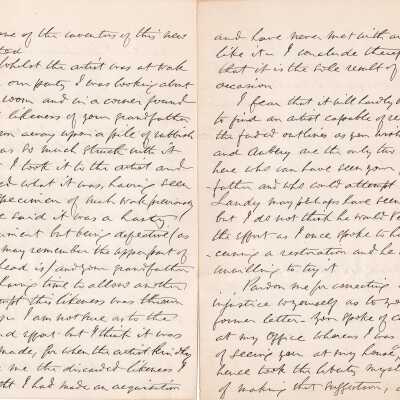 one of the inventors of this new
Whilst the artist was at work
our party I was looking about
room and in a corner found
likeness of your grandfather
away upon a pile of rubbish
as so much struck with it
I took it to the artist and
what it was, having seen
specimen of such work previously
said it was a hasty
but being defective (as
may remember the upper part of
head is) and your grandfather
having time to allow another
this likeness was thrown
I am not sure as to the
effort - but I think it was
made, for when the artist kindly
me the discarded likeness I
I had made an acquisition
and have never met with
like it - I conclude
that it is the sole result of
occasion
I fear that it will hardly
to find an artist capable of
the faded outlines as you
and Aubrey are the only two
here who can have seen your
father and who could attempt
Landy may perhaps have seen
but I do not think he would
the effort as I once spoke to
a restoration and he
unwilling to try it
Pardon me for correcting
injustice to yourself as to
former letter - You spoke of
at my Office whereas I was
of seeing you at my house,
hence took the liberty
of making that suggestion,